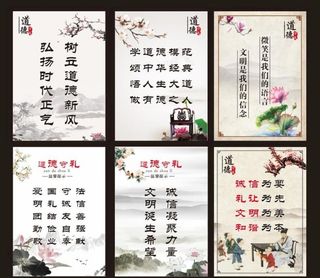 道德
树立道德新风
弘扬时代正气
道德
学道德模范
颂中华经典
悟人生大道
做有德之人
道德
微笑是我们的语言
文明是我们的信念
道德守礼
温馨提示
爱国守法
明礼诚信
团结友善
勤俭自强
敬业奉献
道德守礼
温馨提示
诚信凝聚力量
文明诞生希望
道德
诚信为要
礼让为先
文明为美
和谐为本